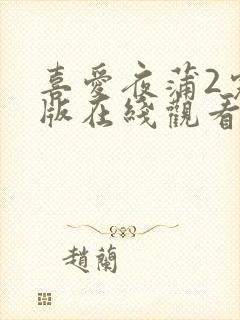 喜愛夜蒲2完
版在綫觀看
趙蘭